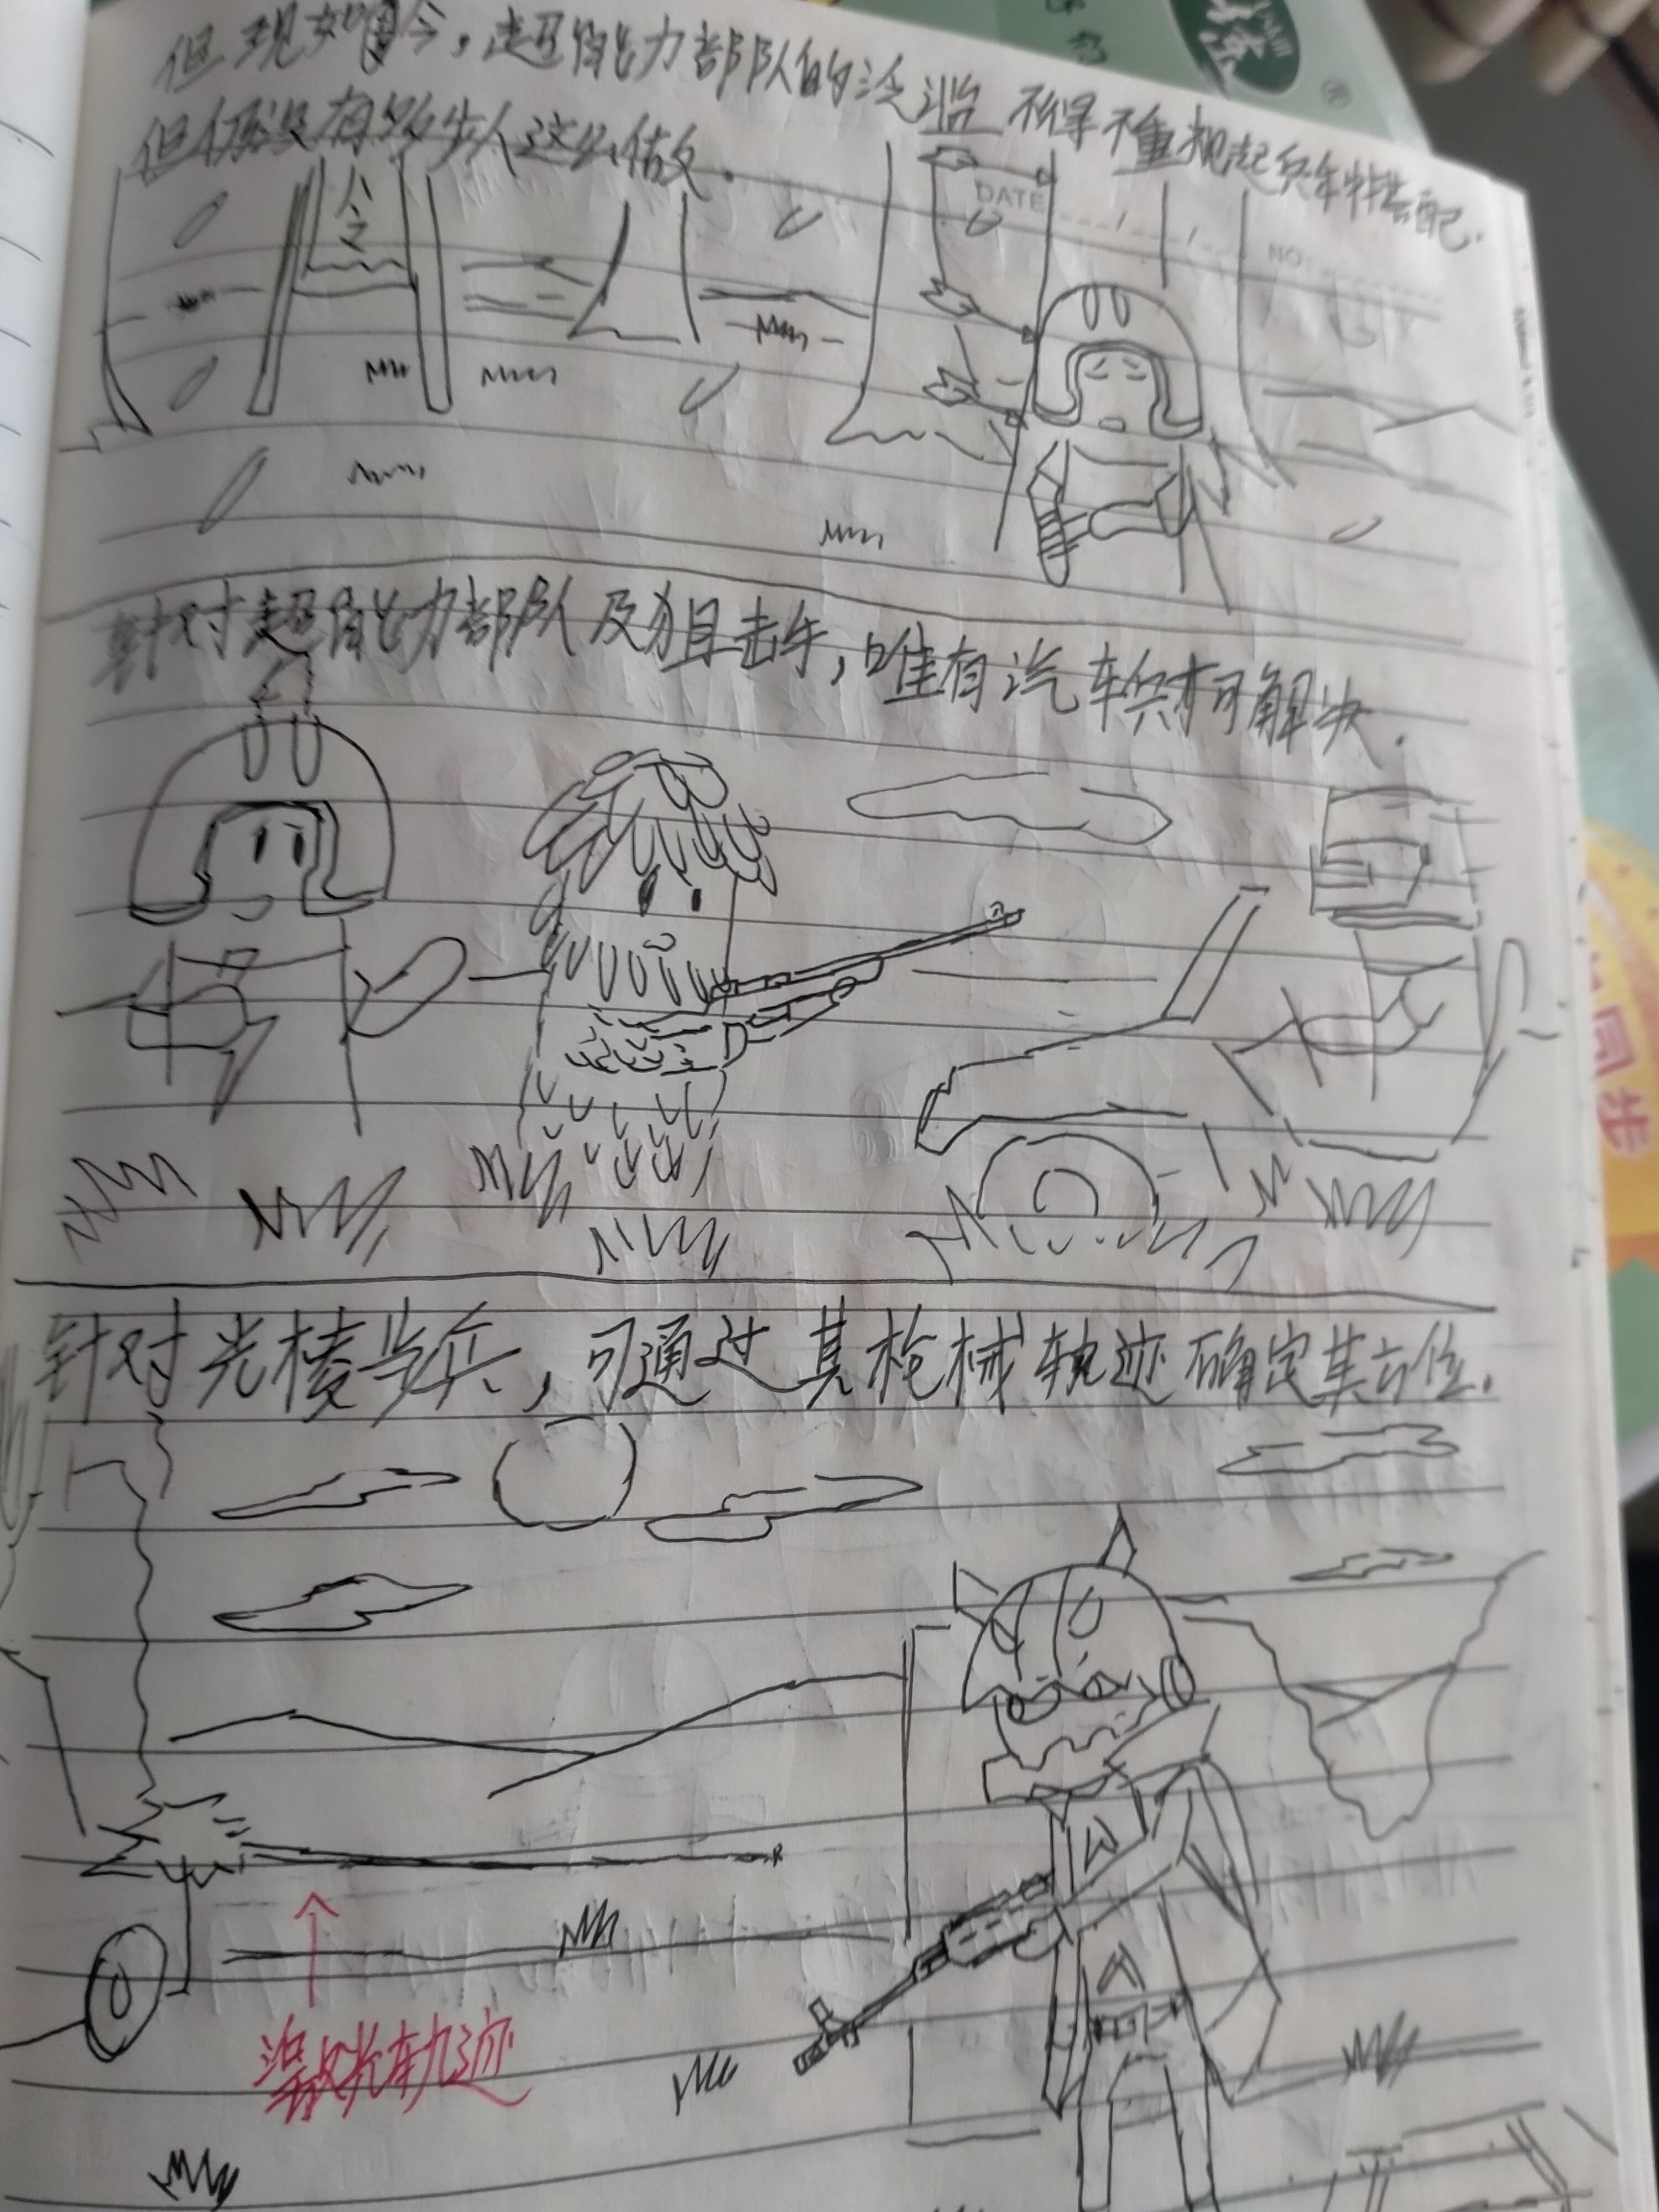 但现如今,超能力部队的泛滥 不得不重视起兵种搭配.
但仍没有多少人这么做.
DATE
NO:
针对超能力部队及狙击手,唯有汽车兵才可解决.
针对光棱步兵,可通过其枪械轨迹确定其方位.
W
激光轨迹
同步